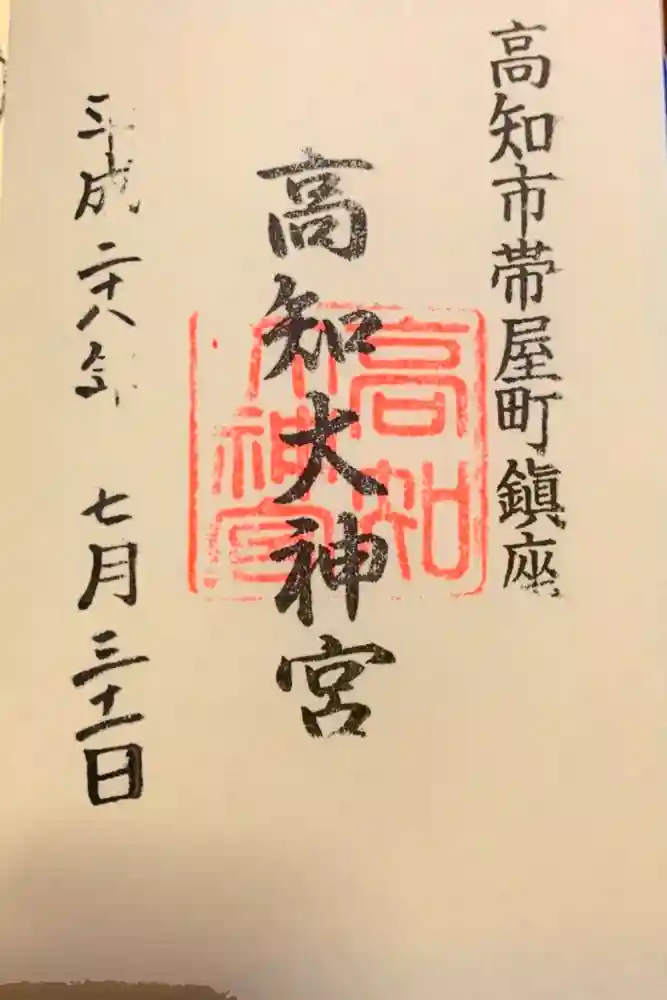 高知市帯屋町鎮座
高知大神宮
高知
大神宮
平成二十八年 七月三十一日